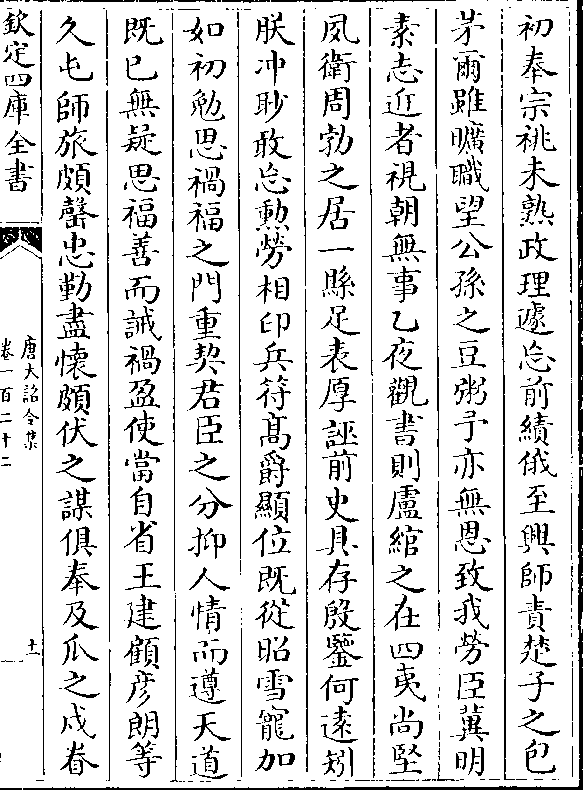 初奉宗祧未熟政理遽忘前績俄至興師責楚子之包
茅爾雖曠職望公孫之豆粥予亦無恩致我勞臣冀明
素志近者視朝無事乙夜觀書則盧綰之在四夷尚堅
夙衛周勃之居一縣足表厚誣前史具存殷鑒何逺矧
朕冲眇敢忘勲勞相印兵符髙爵顯位既從昭雪寵加
如初勉思禍福之門重契君臣之分抑人情而遵天道
既已無疑思福善而誡禍盈使當自省王建顧彦朗等
久屯師旅頗罄忠勤盡懐頗伏之謀俱奉及瓜之戍眷
欽定四庫全書
唐大詔令集
卷一百二十二
十一